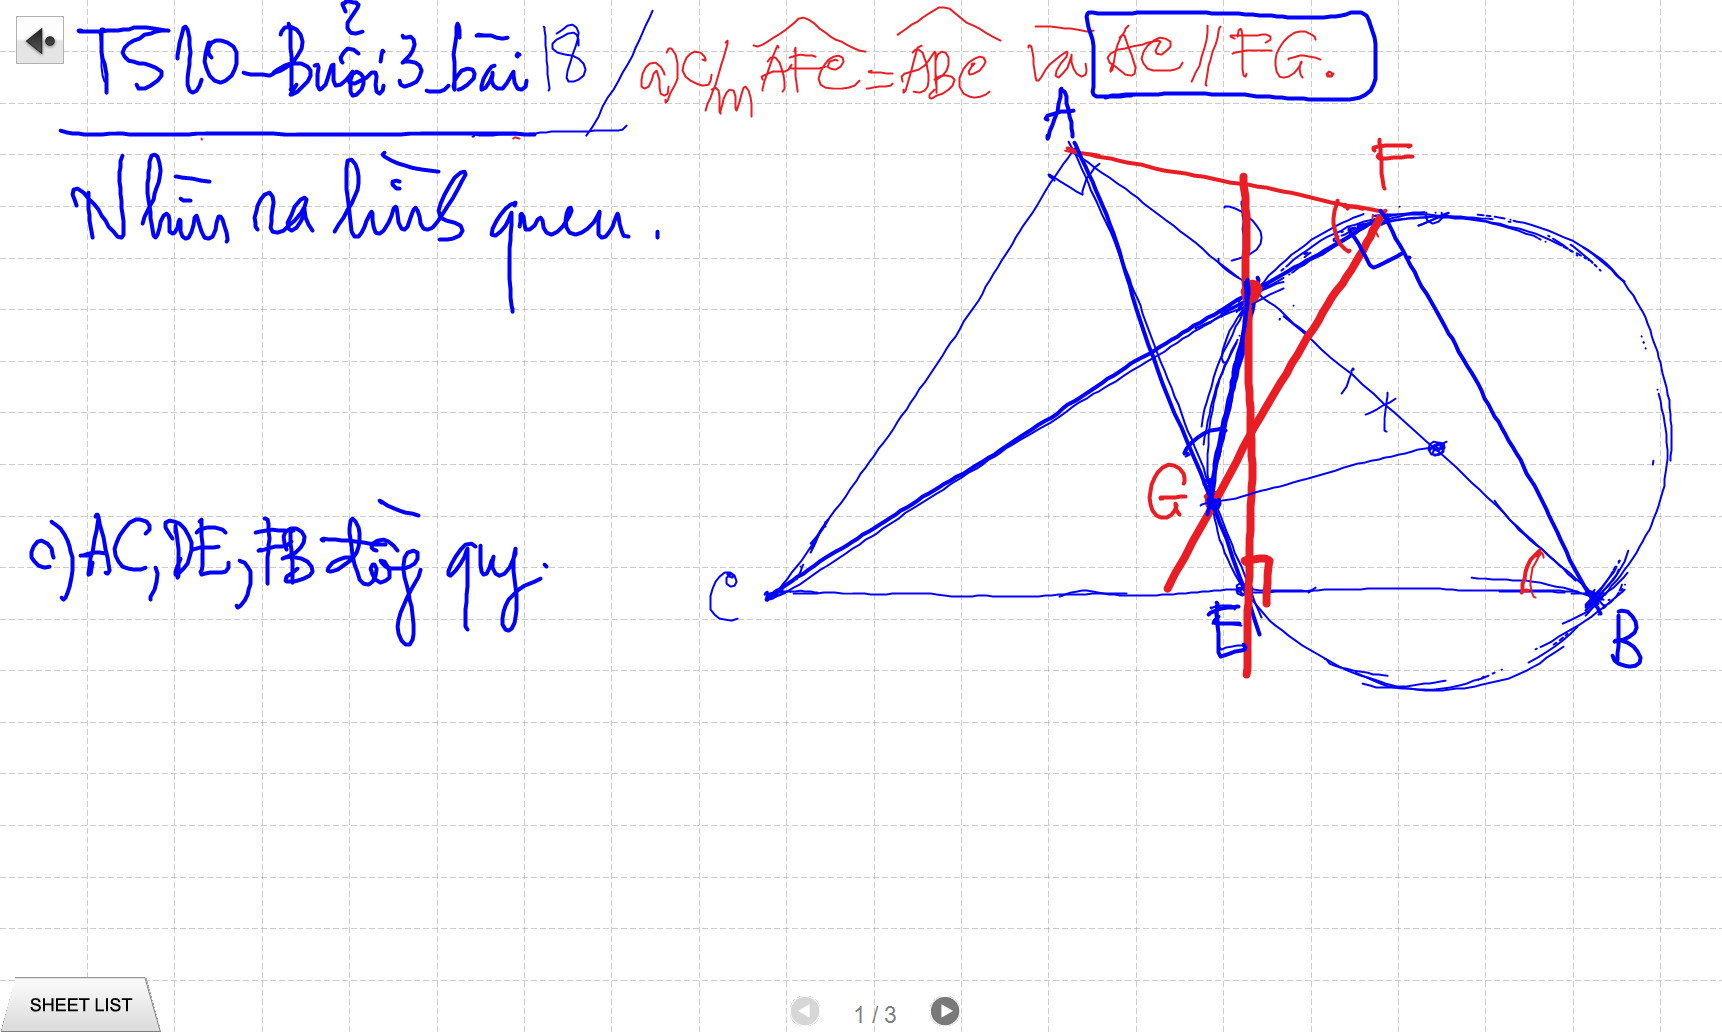 TS10_Buổi 3_bài 18
a) C/m AFC = ABC và AC // FG.
Nhìn ra hình quen.
A
F
G
c) AC, DE, FB đồng quy.
C
E
B
SHEET LIST
1 / 3